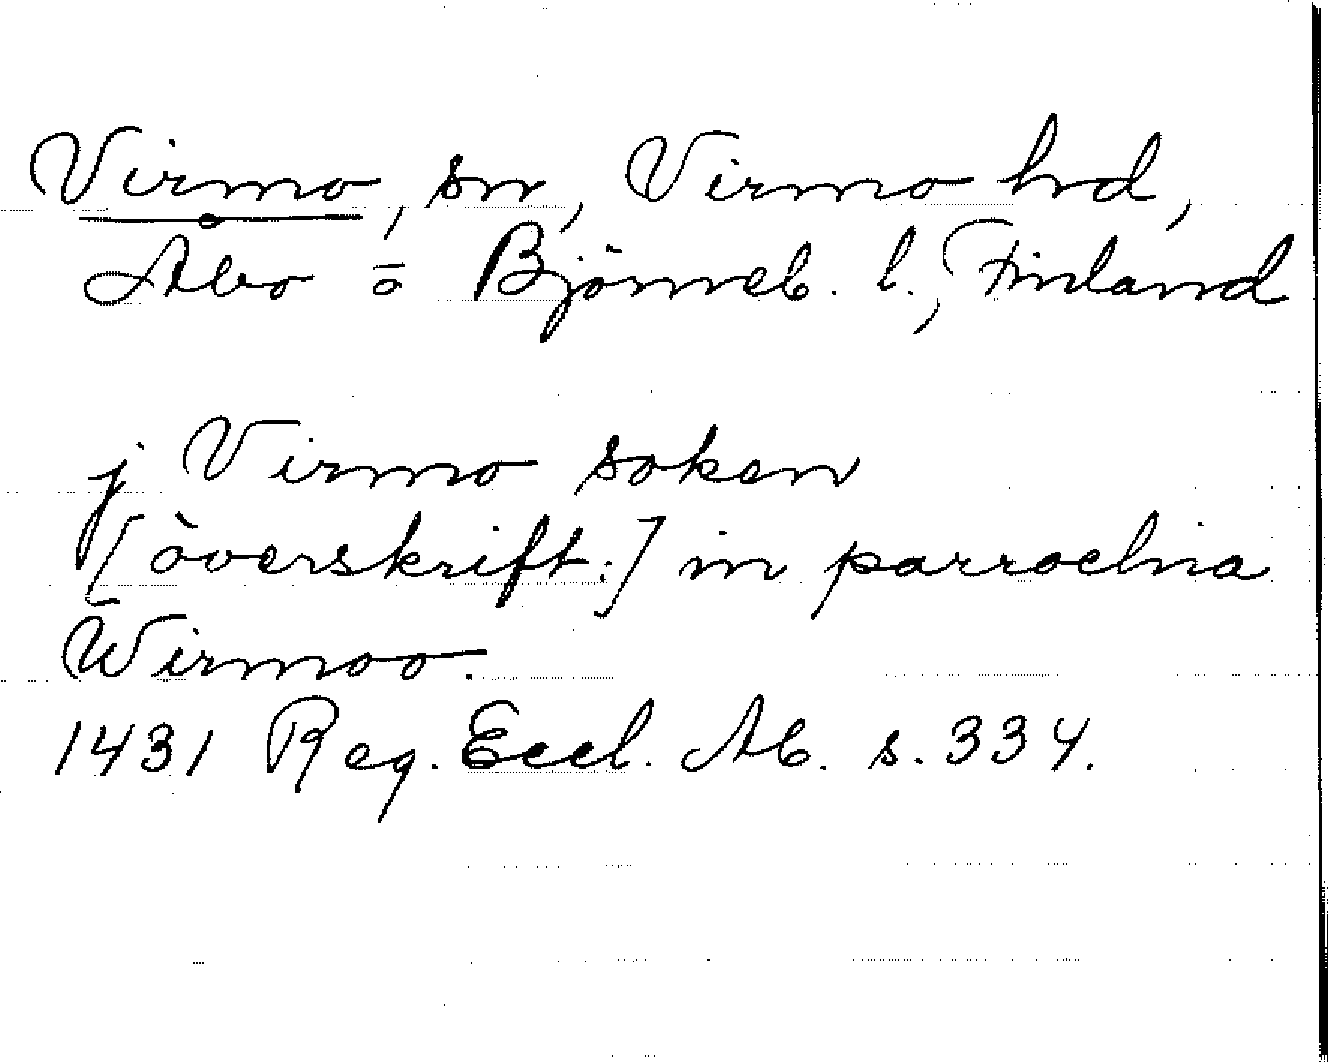 Virmo, sn, Virmo hd,
Åbo o Björneb. l., Finland
j Virmo soken
[överskrift:] in parrochia
Wirmoo.
1431 Reg. Eccl. Ab. s. 334.